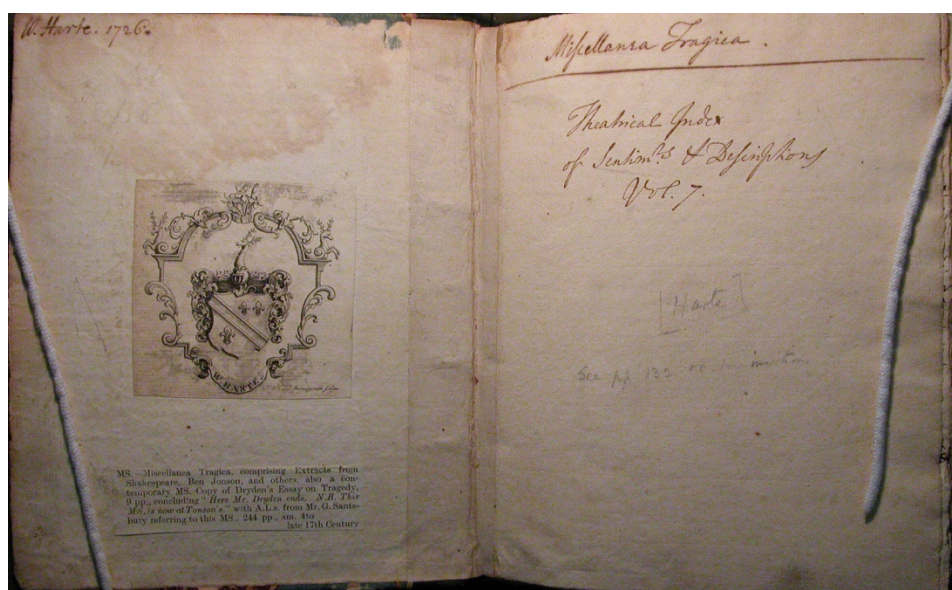 W. Harte. 1726.
W. HARTE.
MS.—Miscellanea Tragica, comprising Extracts from
Shakespeare, Ben Jonson, and others, also a con-
temporary MS. Copy of Dryden's Essay on Tragedy,
9 pp., concluding "Here Mr. Dryden ends. N.B. This
MS. is now at Tonson's." with A.L.s. from Mr. G. Sante-
bury referring to this MS., 244 pp., sm. 4to
late 17th Century
Miscellanea Tragica.
Theatrical Index
of Sentimts & Descriptions
Vol. 7.
[Harte]
See pp 132